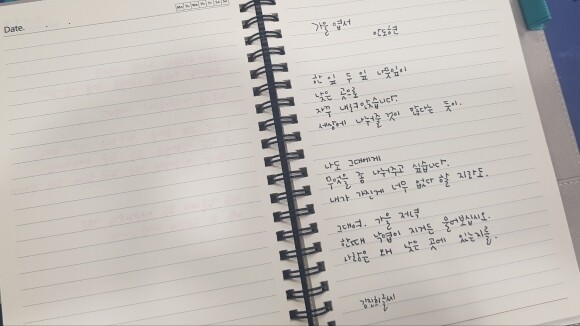 Date.
Mo Tu We Th Fr Sa Su
가을 엽서
안도현
한 잎 두 잎 나뭇잎이
낮은 곳으로
자꾸 내려앉습니다.
세상에 나누어줄 것이 많다는 듯이.
나도 그대에게
무엇을 좀 나눠주고 싶습니다.
내가 가진게 너무 없다 할 지라도.
그대여. 가을 저녁
한때 낙엽이 지거든 물어보십시오.
사랑은 왜 낮은 곳에 있는지를.